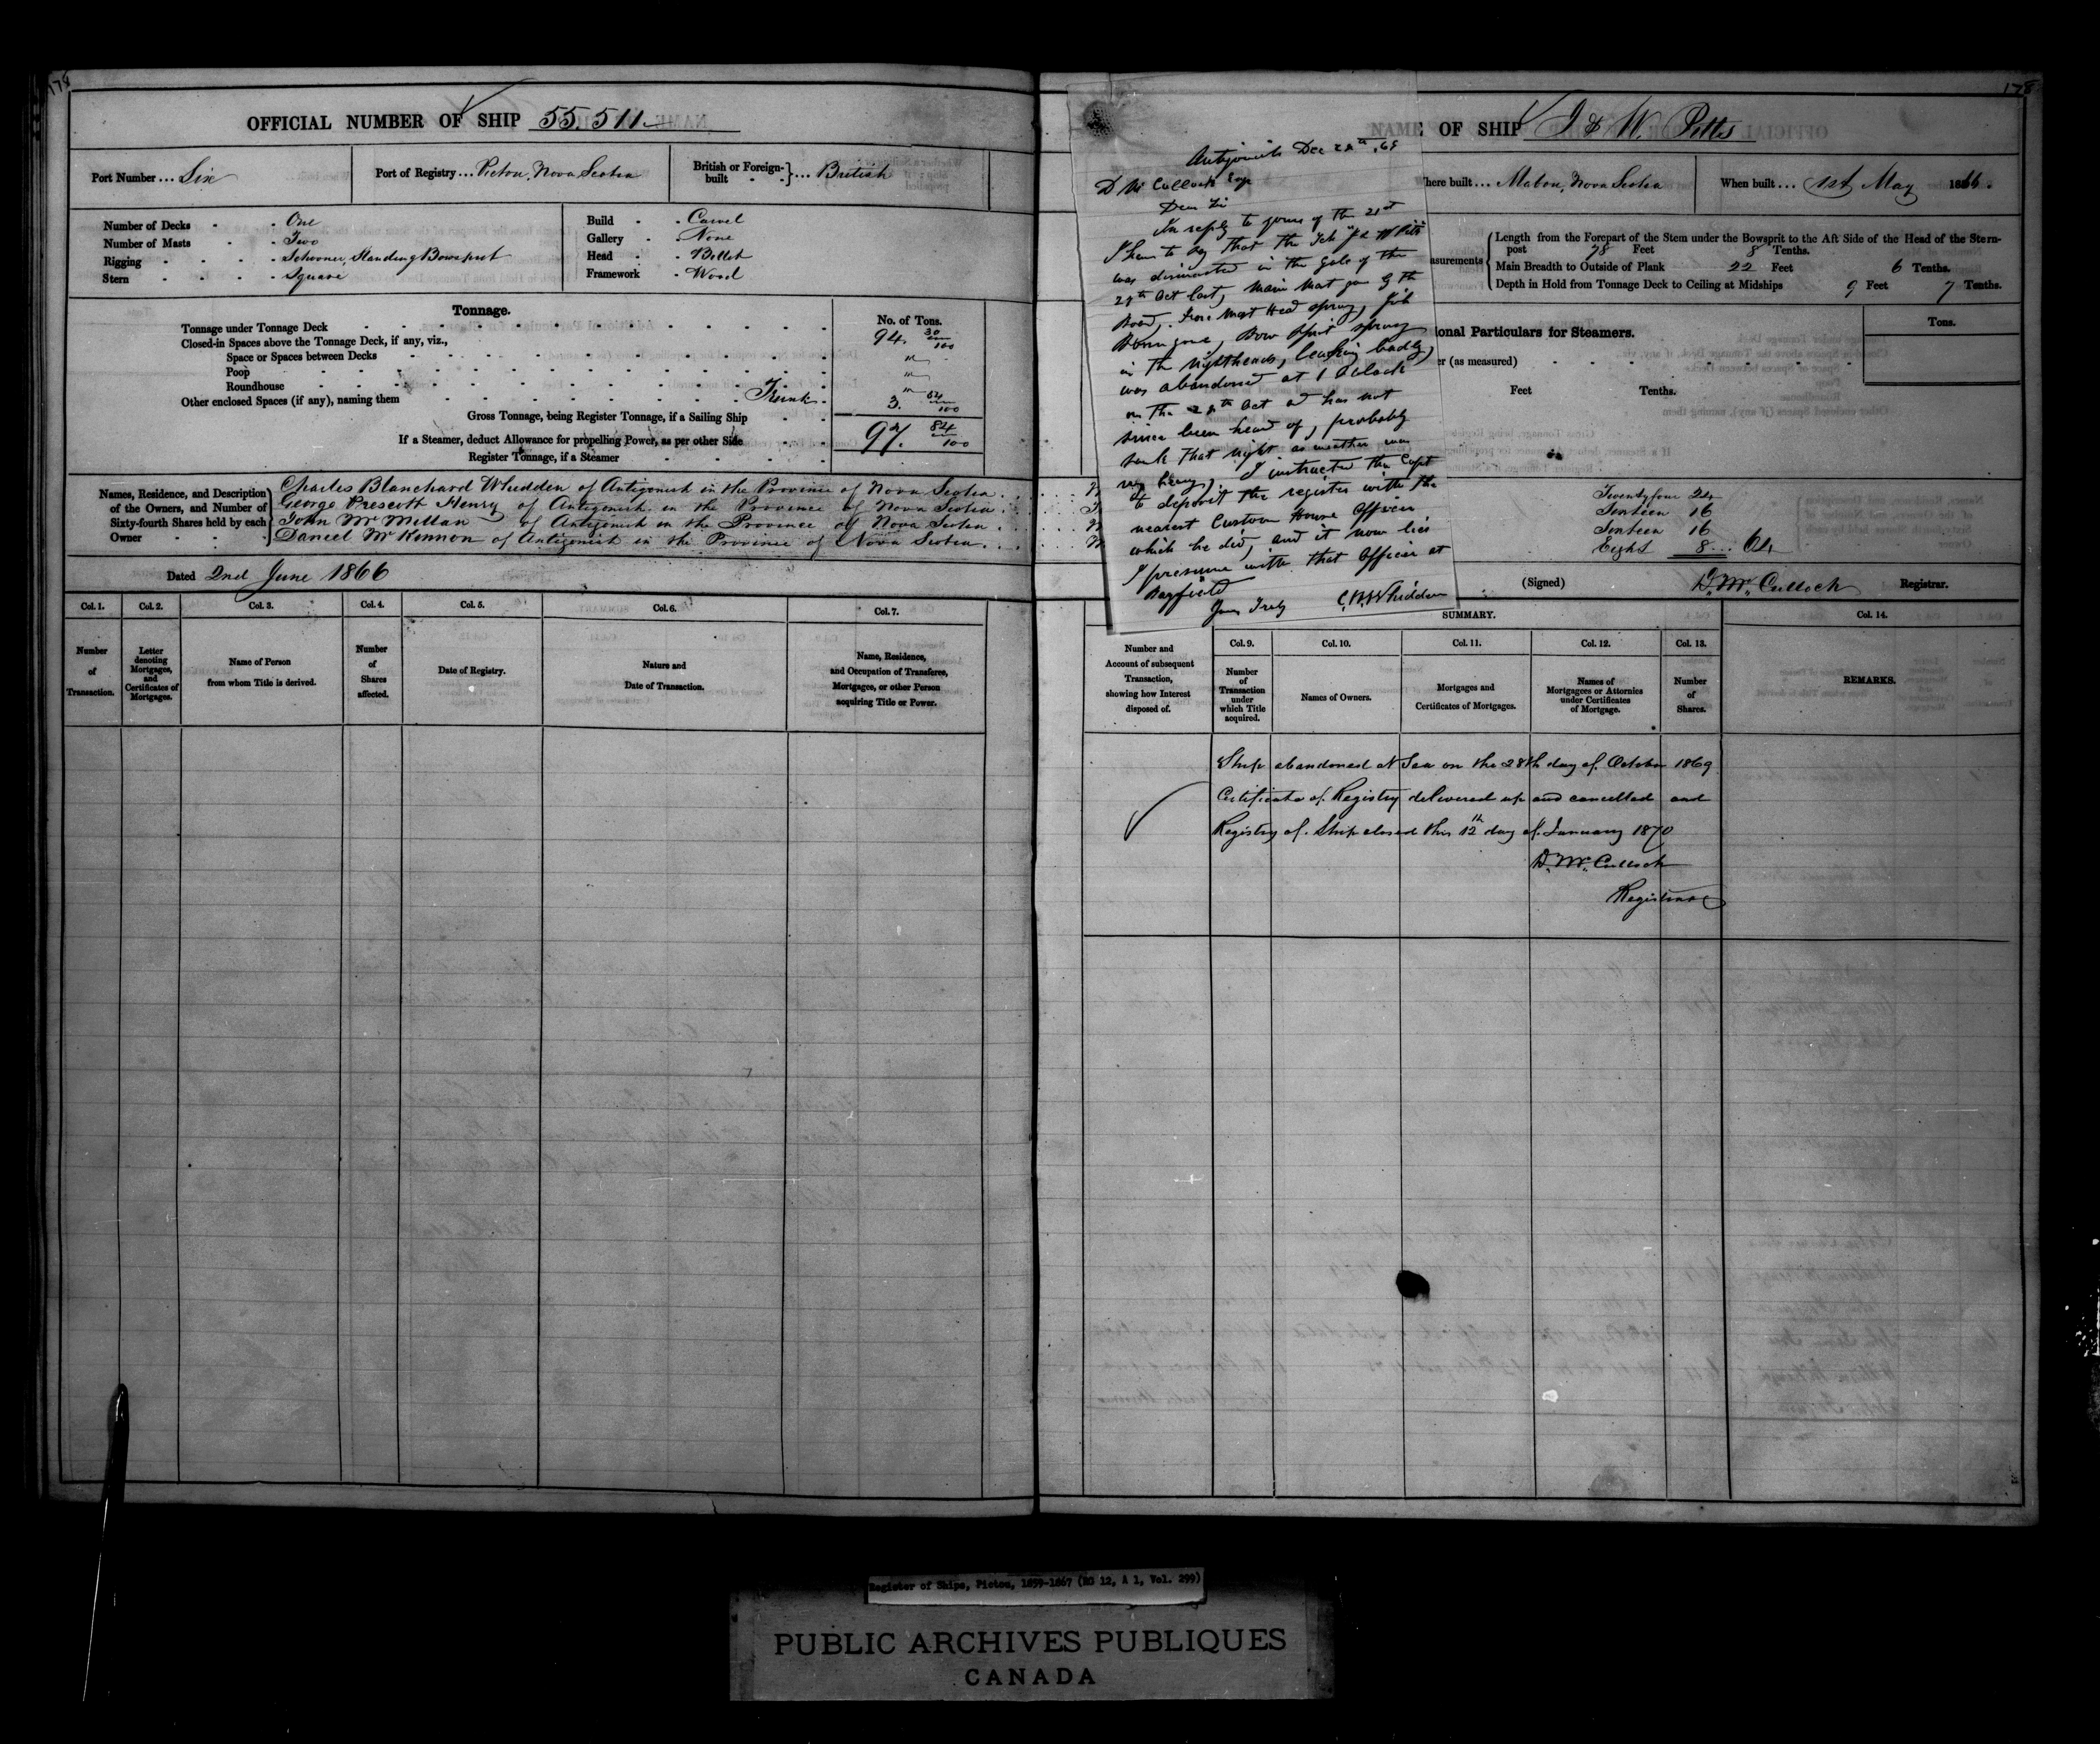 178
OFFICIAL NUMBER OF SHIP 55.511
Port Number ... Six
Port of Registry ... Pictou, Nova Scotia
British or Foreign-built ... British
Number of Decks - One
Number of Masts - Two
Rigging - Schooner, Standing Bowsprit
Stern - Square
Build - Carvel
Gallery - None
Head - Billet
Framework - Wood
Tonnage.
No. of Tons.
Tonnage under Tonnage Deck 94. 30/100
Closed-in Spaces above the Tonnage Deck, if any, viz.,
Space or Spaces between Decks "
Poop "
Roundhouse "
Other enclosed Spaces (if any), naming them Trunk 3. 54/100
Gross Tonnage, being Register Tonnage, if a Sailing Ship 97. 84/100
If a Steamer, deduct Allowance for propelling Power, as per other Side
Register Tonnage, if a Steamer
Names, Residence, and Description of the Owners, and Number of Sixty-fourth Shares held by each Owner
Charles Blanchard Whidden of Antigonish in the Province of Nova Scotia
George Prescott Henry of Antigonish in the Province of Nova Scotia
John McMillan of Antigonish in the Province of Nova Scotia
Daniel McKinnon of Antigonish in the Province of Nova Scotia
Dated 2nd June 1866
Col. 1. Col. 2. Col. 3. Col. 4. Col. 5. Col. 6. Col. 7.
Number of Transaction.
Letter denoting Mortgages, and Certificates of Mortgages.
Name of Person from whom Title is derived.
Number of Shares affected.
Date of Registry.
Nature and Date of Transaction.
Name, Residence, and Occupation of Transferee, Mortgagee, or other Person acquiring Title or Power.
178
NAME OF SHIP J & W. Pitts
here built ... Mabou, Nova Scotia
When built ... 1st May 1866.
asurements
Length from the Forepart of the Stem under the Bowsprit to the Aft Side of the Head of the Stern-
post 78 Feet 8 Tenths.
Main Breadth to Outside of Plank 22 Feet 6 Tenths.
Depth in Hold from Tonnage Deck to Ceiling at Midships 9 Feet 7 Tenths.
ional Particulars for Steamers.
Tons.
er (as measured)
Feet Tenths.
Twenty four 24
Sixteen 16
Sixteen 16
Eight 8 ... 64
(Signed) D. McCulloch Registrar.
Antigonish Dec 28th, 69
D McCulloch Esqr
Dear Sir
In reply to yours of the 21st
I have to say that the Sch "J & W Pitts"
was dismasted in the gale of the
28th Oct last, Main Mast gone by the
Board, Fore Mast Head sprung, Jib
Boom gone, Bow sprit sprung
in the nightheads, leaking badly,
was abandoned at 1 Oclock
on the 28th Oct and has not
since been heard of, probably
sunk that night as weather was
very heavy. I instructed the Capt
to deposit the register with the
nearest Custom House Officer
which he did, and it now lies
I presume with that Officer at
Bayfield
Yours Truly C.B. Whidden
SUMMARY.
Col. 9. Col. 10. Col. 11. Col. 12. Col. 13. Col. 14.
Number and Account of subsequent Transaction, showing how Interest disposed of.
Number of Transaction under which Title acquired.
Names of Owners.
Mortgages and Certificates of Mortgages.
Names of Mortgagees or Attornies under Certificates of Mortgage.
Number of Shares.
REMARKS.
Ship abandoned at Sea on the 28th day of October 1869
Certificate of Registry delivered up and cancelled and
Registry of Ship closed this 12th day of January 1870
D. McCulloch
Registrar
Register of Ships, Pictou, 1859-1867 (RG 12, A 1, Vol. 299)
PUBLIC ARCHIVES PUBLIQUES
CANADA